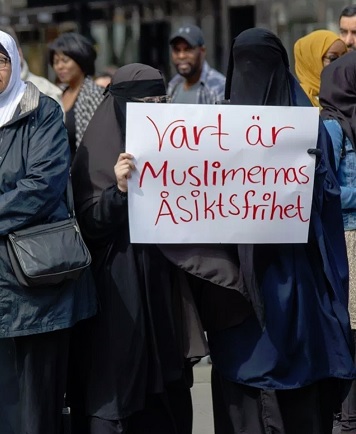 Vart är
Muslimernas
ÅSiktsfrihet